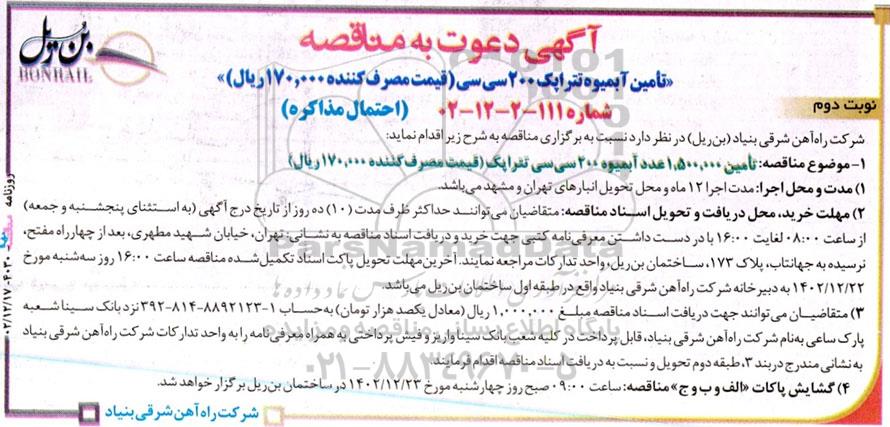 آگهی دعوت به مناقصه
بن ریل
BONRAIL
«تأمین آبمیوه تتراپک ۲۰۰ سی سی (قیمت مصرف کننده ۱۷۰,۰۰۰ ریال)»
نوبت دوم
شماره ۱۱۱-۲-۱۲-۰۲ (احتمال مذاکره)
شرکت راه آهن شرقی بنیاد (بن ریل) در نظر دارد نسبت به برگزاری مناقصه به شرح زیر اقدام نماید:
۱- موضوع مناقصه: تأمین ۱,۵۰۰,۰۰۰ عدد آبمیوه ۲۰۰ سی سی تتراپک (قیمت مصرف کننده ۱۷۰,۰۰۰ ریال)
۱) مدت و محل اجرا: مدت اجرا ۱۲ ماه و محل تحویل انبارهای تهران و مشهد می‌باشد.
۲) مهلت خرید، محل دریافت و تحویل اسناد مناقصه: متقاضیان می‌توانند حداکثر ظرف مدت (۱۰) ده روز از تاریخ درج آگهی (به استثنای پنجشنبه و جمعه)
از ساعت ۰۸:۰۰ لغایت ۱۶:۰۰ با در دست داشتن معرفی نامه کتبی جهت خرید و دریافت اسناد مناقصه به نشانی: تهران، خیابان شهید مطهری، بعد از چهارراه مفتح،
نرسیده به جهانتاب، پلاک ۱۷۳، ساختمان بن ریل، واحد تدارکات مراجعه نمایند. آخرین مهلت تحویل پاکت اسناد تکمیل شده مناقصه ساعت ۱۶:۰۰ روز سه‌شنبه مورخ
۱۴۰۲/۱۲/۲۲ به دبیرخانه شرکت راه آهن شرقی بنیاد واقع در طبقه اول ساختمان بن ریل می‌باشد.
۳) متقاضیان می‌توانند جهت دریافت اسناد مناقصه مبلغ ۱,۰۰۰,۰۰۰ ریال (معادل یکصد هزار تومان) به حساب ۱-۸۸۹۲۱۲۳-۸۱۴-۳۹۲ نزد بانک سینا شعبه
پارک ساعی به نام شرکت راه آهن شرقی بنیاد، قابل پرداخت در کلیه شعب بانک سینا واریز و فیش پرداختی به همراه معرفی نامه را به واحد تدارکات شرکت راه آهن شرقی بنیاد
به نشانی مندرج در بند ۳، طبقه دوم تحویل و نسبت به دریافت اسناد مناقصه اقدام فرمایند.
۴) گشایش پاکات «الف و ب و ج» مناقصه: ساعت ۰۹:۰۰ صبح روز چهارشنبه مورخ ۱۴۰۲/۱۲/۲۳ در ساختمان بن ریل برگزار خواهد شد.
شرکت راه آهن شرقی بنیاد
ParsNamadData
پایگاه اطلاع رسانی مناقصه و مزایده
۰۲۱-۸۸۳۴۹۶۷۰-۵
روزنامه